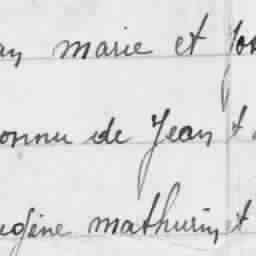 an marie et Jos
onnu de Jean t
ugène mathurin t